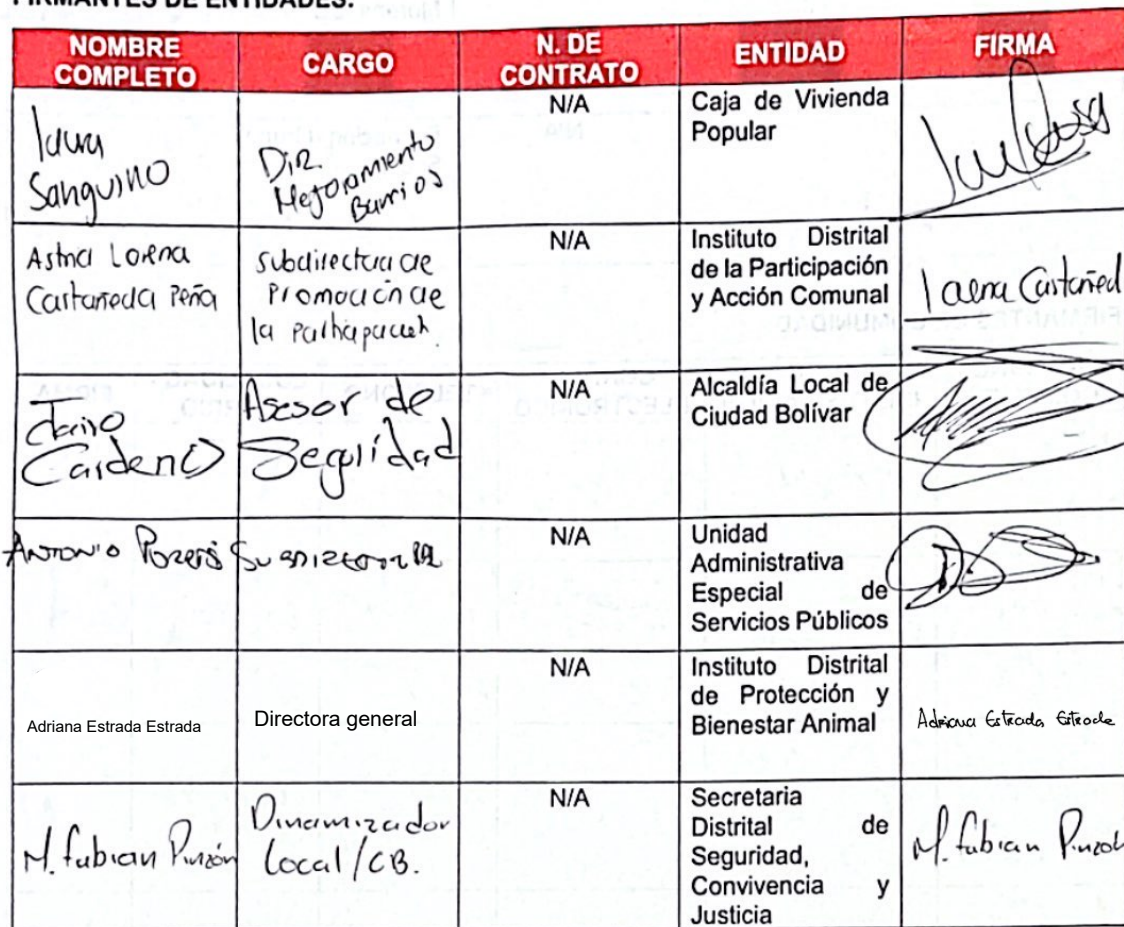 FIRMANTES DE ENTIDADES:
NOMBRE COMPLETO CARGO N. DE CONTRATO ENTIDAD FIRMA
Laura
Sanguino
Dir.
Mejoramiento
Barrios
N/A
Caja de Vivienda
Popular
Astrid Lorena
Castañeda Peña
Subdirectora de
Promoción de
la Participación.
N/A
Instituto Distrital
de la Participación
y Acción Comunal
Lorena Castañed
Jairo
Cardeno
Asesor de
Seguridad
N/A
Alcaldía Local de
Ciudad Bolívar
Antonio
N/A
Unidad
Administrativa
Especial de
Servicios Públicos
Adriana Estrada Estrada
Directora general
N/A
Instituto Distrital
de Protección y
Bienestar Animal
Adriana Estrada Estrada
M. Fabian Pinzón
Dinamizador
Local/CB.
N/A
Secretaria
Distrital de
Seguridad,
Convivencia y
Justicia
M. Fabian Pinzón